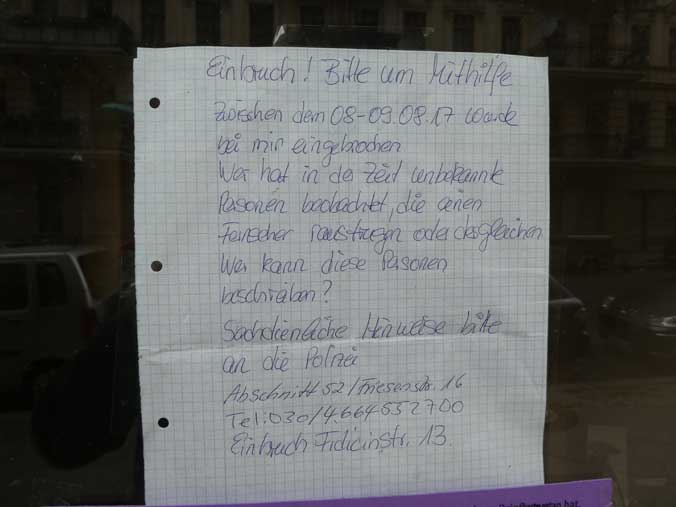 Einbruch! Bitte um Mithilfe
Zwischen dem 08-09.08.17 wurde
bei mir eingebrochen
Wer hat in der Zeit unbekannte
Personen beobachtet, die einen
Fernseher raustrugen oder desgleichen
Wer kann diese Personen
beschreiben?
Sachdienliche Hinweise bitte
an die Polizei
Abschnitt 52/Friesenstr. 16
Tel.:030/4664552700
Einbruch Fidicinstr. 13.